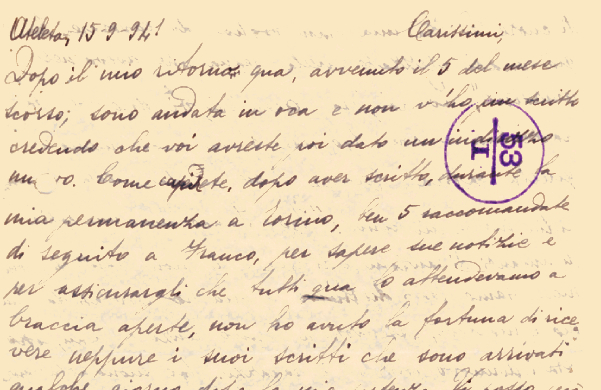 Ateleta, 15-9-941 Carissimi,
Dopo il mio ritorno qua, avvenuto il 5 del mese
scorso, sono andata in oca e non v'ho un scritto
credendo che voi avreste voi dato un
un Come capirete, dopo aver scritto, durante la
mia permanenza a Torino, ben 5 raccomandate
di seguito a Franco, per sapere sue notizie e
per assicurargli che tutti qua o attendevamo a
braccia aperte, non ho avuto la fortuna di rice
vere neppure i suoi scritti che sono arrivati
qualche giorno dopo la mia
53
I